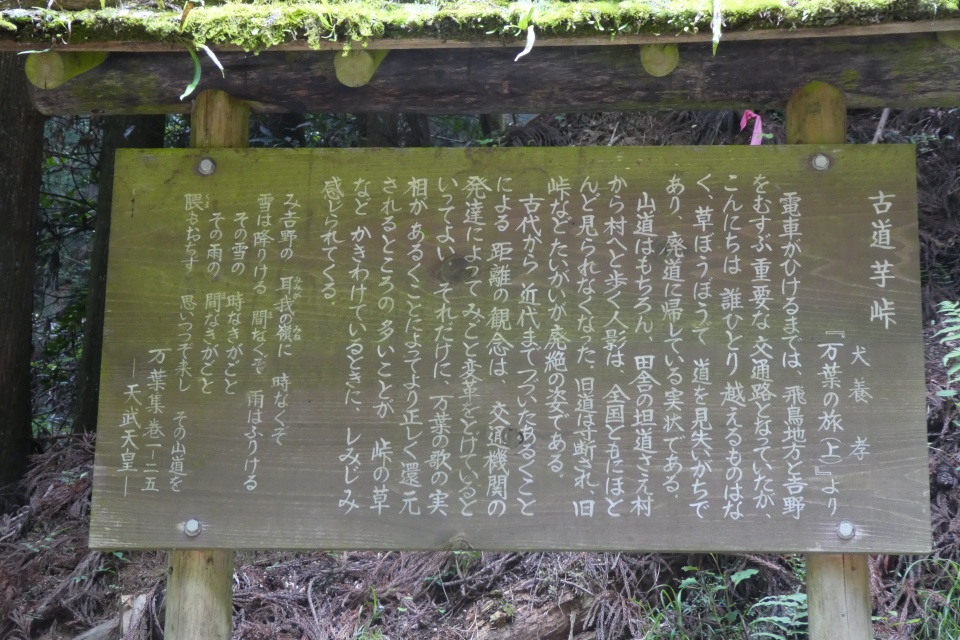 古道芋峠
犬養 孝
『万葉の旅(上)』より
電車がひけるまでは、飛鳥地方と吉野
をむすぶ重要な交通路となっていたが、
こんにちは 誰ひとり 越えるものはな
く、草ぼうぼうで 道を見失いがちで
あり、廃道に帰している実状である。
山道はもちろん、田舎の坦道さえ村
から村へと歩く人影は、全国ともにほと
んど見られなくなった。旧道は寸断され、旧
峠などたいがいが廃絶の姿である。
古代から 近代までつづいたあるくこと
による 距離の観念は、交通機関の
発達によって みごと変革をとげていると
いってよい。それだけに、万葉の歌の実
相が あるくことによってより正しく還元
されるところの多いことが、峠の草
など かきわけているときに、しみじみ
感じられてくる。
み吉野の 耳我の嶺に 時なくそ
雪は降りける 間なくそ 雨はふりける
その雪の 時なきがごと
その雨の 間なきがごと
隈もおちず 思いつつぞ来し その山道を
万葉集 巻一-二五
―天武天皇―